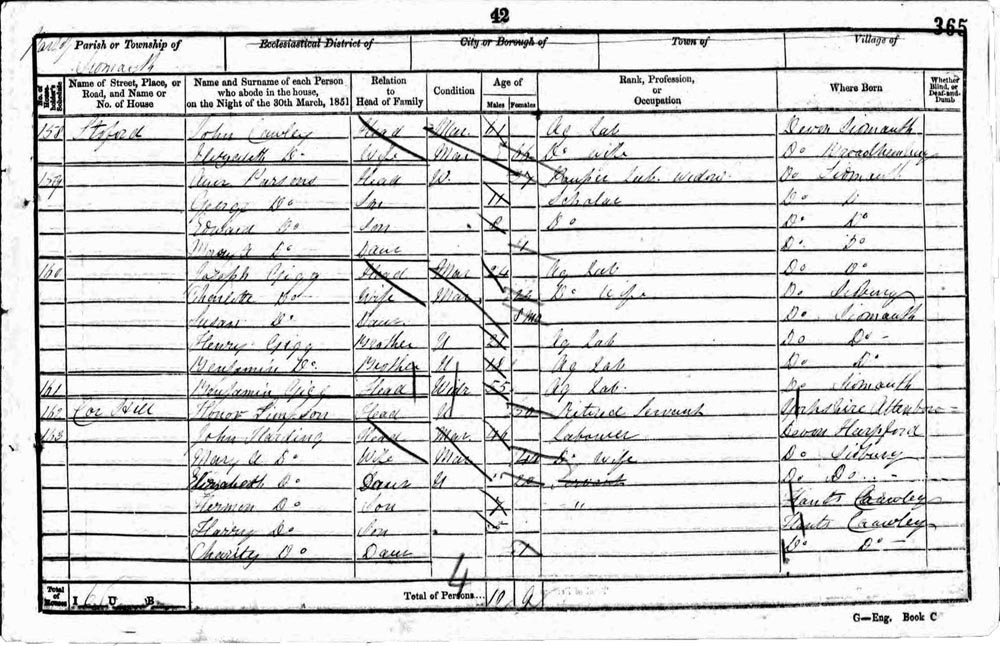 42
365
Parish or Township of Ecclesiastical District of City or Borough of Town of Village of
Sidmouth
No. of House-holder's Schedule Name of Street, Place, or Road, and Name or No. of House Name and Surname of each Person who abode in the house, on the Night of the 30th March, 1851 Relation to Head of Family Condition Age of Males Females Rank, Profession, or Occupation Where Born Whether Blind, or Deaf-and-Dumb
158 John Cawley Head Mar 61 Ag Lab Devon Sidmouth
Elizabeth Do Wife Mar Do Wife Do Broadhembury
159 Ann Parsons Head W. 47 Pauper Lab. Widow Do Sidmouth
George Do Son 11 Scholar Do
Edward Do Son 8 Do Do Do
Mary A Do Daur 4 Do Do
160 Joseph Gigg Head Mar 24 Ag Lab Do Do
Charlotte Do Wife Mar Do Wife Do Sidbury
Susan Do Daur Do Sidmouth
Henry Gigg Brother U 21 Ag Lab Do Do
Benjamin Do Brother U 18 Ag Lab Do Do
161 Benjamin Gigg Head Widr 55 Ag Lab. Do Sidmouth
162 Cor Hill Honor Simpson Head U 50 Retired Servant Yorkshire
163 John Harding Head Mar 46 Labourer Devon Harpford
Mary A Do Wife Mar 44 Do Wife Do Sidbury
Elizabeth Do Daur U 20 Servant Do Do
Hermon Do Son " Hants Crawley
Harry Do Son Hants Crawley
Charity Do Daur Do Do
Total of Houses I 6 U B Total of Persons... 10 9
4
G—Eng. Book C